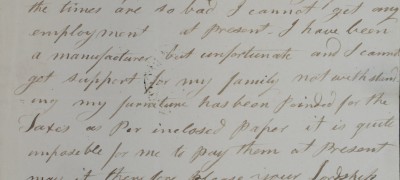 the times are so bad I cannot get any
employment at Present. I have been
a manufacturer but unfortunate and I cannot
get support for my family notwithstand
ing my furniture has been Poinded for the
Taxes as Per inclosed Paper it is quite
imposible for me to pay them at Present
may it therefore please your Lordships